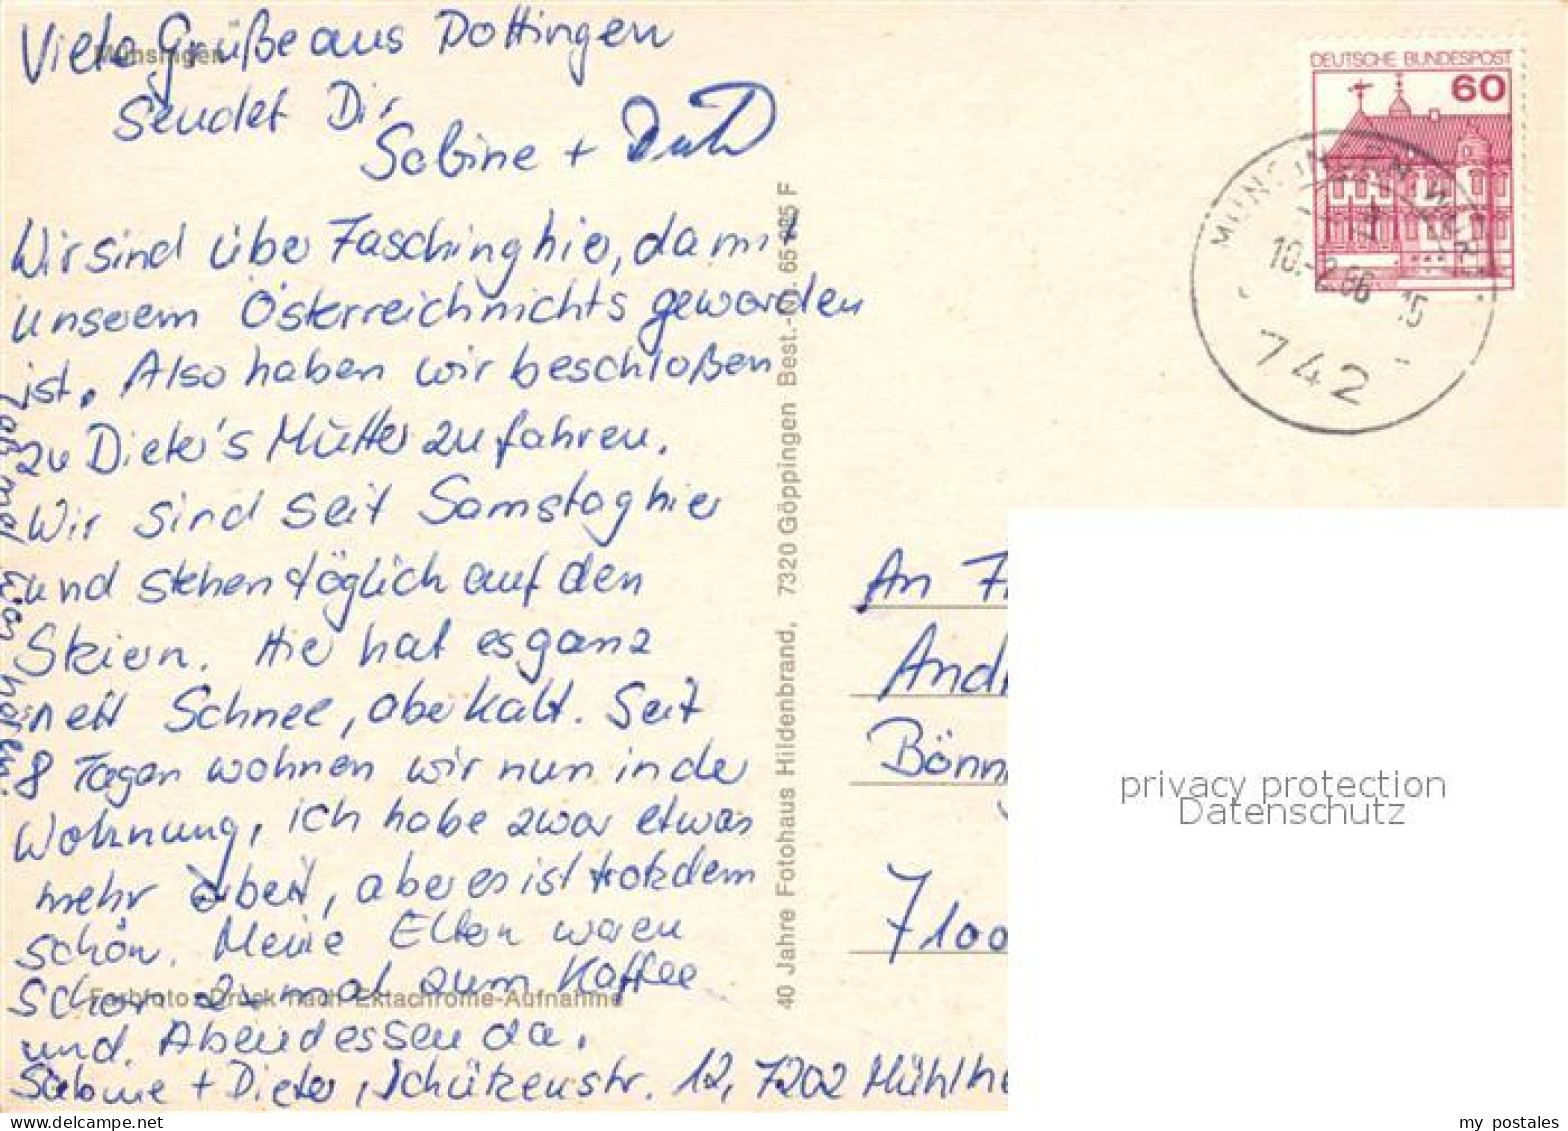 Viele Grüße aus Dottingen
Münsingen
sendet Dir
Sabine +
Wir sind über Fasching hier, da mit
unserem Österreich nichts geworden
ist. Also haben wir beschloßen
zu Dieter's Mutter zu fahren.
Wir sind seit Samstag hier
und stehen täglich auf den
Skiern. Hier hat es ganz
nett Schnee, aber kalt. Seit
8 Tagen wohnen wir nun in der
Wohnung, ich habe zwar etwas
mehr Arbeit, aber es ist trotzdem
schön. Meine Eltern waren
schon 2 mal zum Kaffee
Farbfoto + Druck nach Ektachrome-Aufnahme
und Abendessen da.
Sabine + Dieter, Schützenstr. 12, 7202 Mühlhe
Laß mal von hören
40 Jahre Fotohaus Hildenbrand, 7320 Göppingen Best.-Nr. 65 F
DEUTSCHE BUNDESPOST
60
MÜNSINGEN, WÜRTT
10.-2.86 15
742
An F
And
Bönn
7100
privacy protection
Datenschutz
my postales